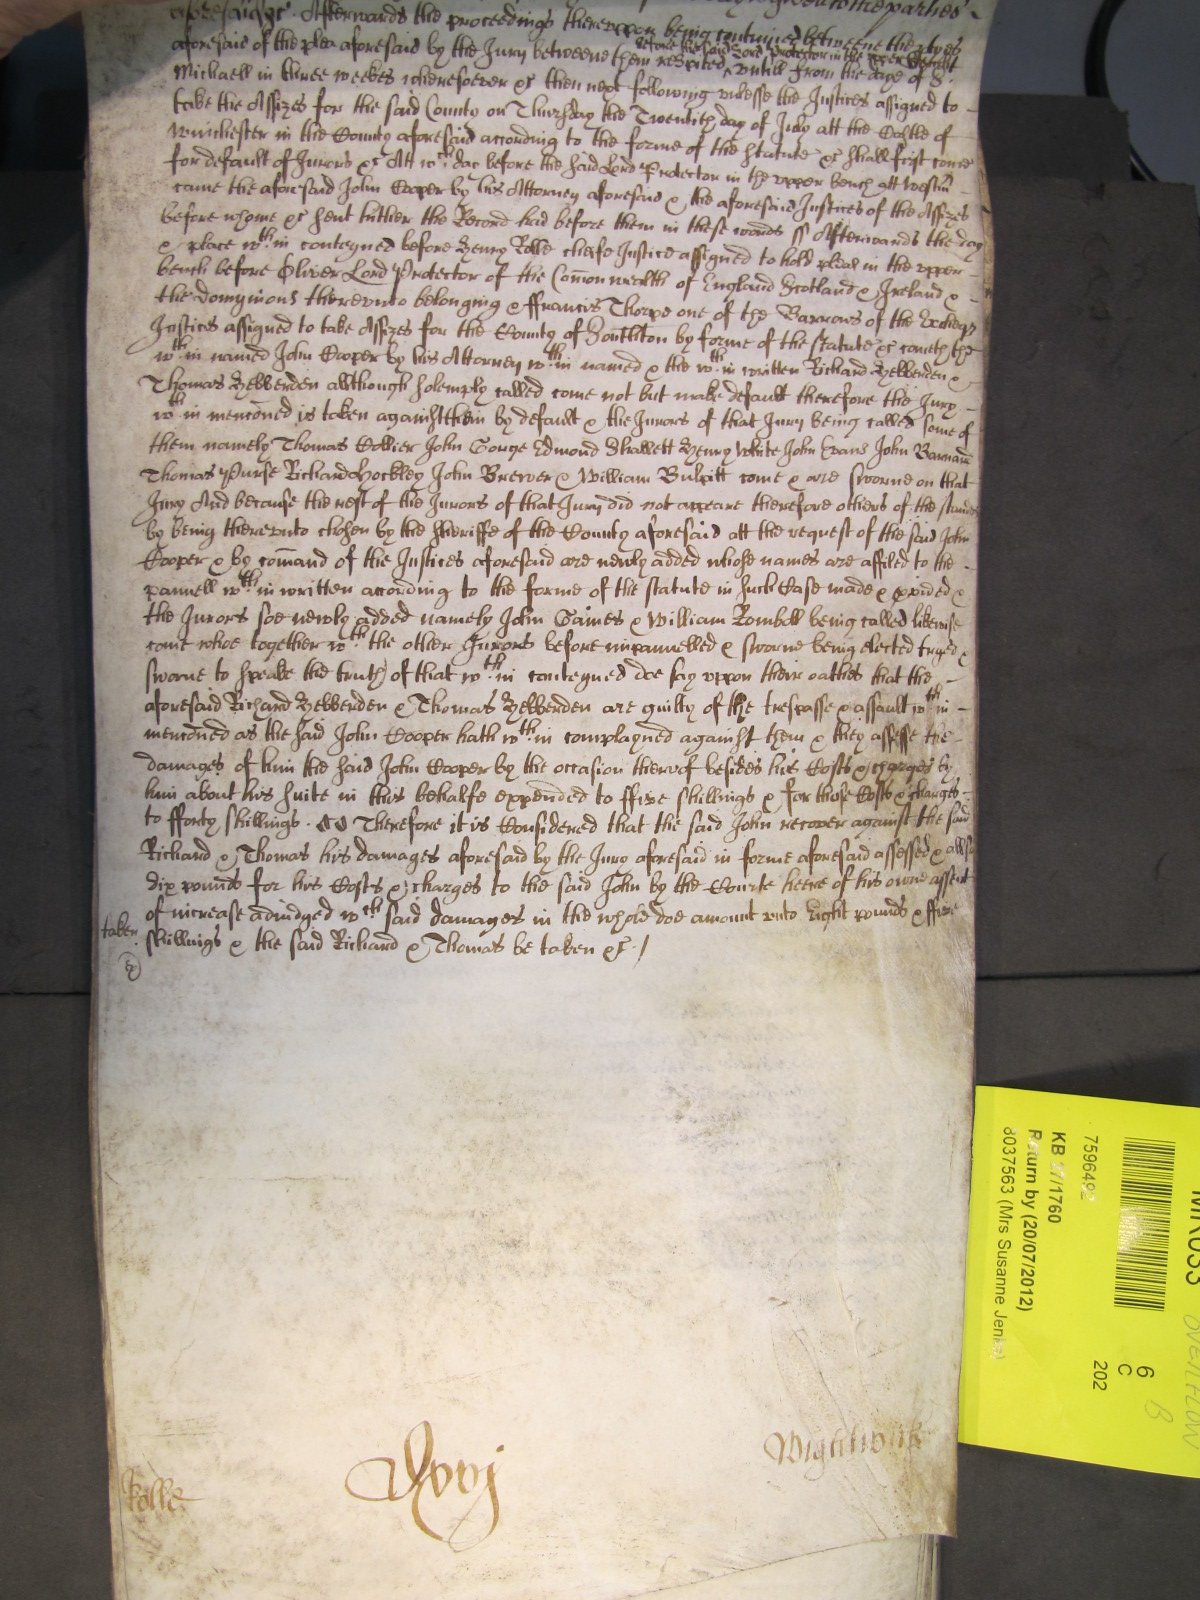 aforesaid &c. Afterwards the proceedings thereupon being continued betweene the ptyes
aforesaid of the plea aforesaid by the Jury betweene them respited before the said Lord Protector in the upper bench untill from the day of S.
Michaell in three weekes wheresoever &c then next following unlesse the Justices assigned to
take the Assizes for the said County on Thursday the Twentith day of July att the Castle of
Winchester in the County aforesaid according to the forme of the statute &c shall first come
for default of Jurors &c Att wch day before the said Lord Protector in the upper bench att Westm
came the aforesaid John Cooper by his Attorney aforesaid & the aforesaid Justices of the Assizes
before whome &c sent hither the Record had before them in these words ss Afterwards the day
& place wthin conteyned before Henry Rolle cheife Justice assigned to hold pleas in the upper
bench before Oliver Lord Protector of the Comonwealth of England Scotland & Ireland &
the Domynions thereunto belonging & ffrancis Thorpe one of the Barrons of the Excheqr
Justices assigned to take Assizes for the County of Southton by forme of the statute &c cometh the
wthin named John Cooper by his Attorney wthin named & the wthin written Richard Hellerden &
Thomas Hellerden allthough solemply called come not but make default therefore the Jury
wthin menconed is taken against them by default & the Jurors of that Jury being called some of
them namely Thomas Collier John Gouge Edmond Shallett Henry White John Evans John Barnard
Thomas Purse Richard Hockley John Brewer & William Bulpitt come & are sworne on that
Jury And because the rest of the Jurors of that Jury did not appeare therefore others of the stand
by being thereunto chosen by the Sheriffe of the County aforesaid att the request of the said John
Cooper & by comand of the Justices aforesaid are newly added whose names are affiled to the
pannell wthin written according to the forme of the statute in such Case made & pvided &
the Jurors soe newly added namely John Gaines & William Romboll being called likewise
come whoe together wth the other Jurors before impannelled & sworne being elected tryed &
sworne to speake the truth of that wthin conteyned doe say uppon their oathes that the
aforesaid Richard Hellerden & Thomas Hellerden are guilty of the trespasse & assault wthin
menconed as the said John Cooper hath wthin complayned against them & they assesse the
damages of him the said John Cooper by the occasion thereof besides his Costs & charges by
him about his suite in this behalfe expended to ffive shillings & for those Costs & charges
to fforty shillings. Therefore it is Considered that the said John recover against the said
Richard & Thomas his damages aforesaid by the Jury aforesaid in forme aforesaid assessed & allsoe
six pounds for his Costs & charges to the said John by the Courte heere of his owne assent
of increase adiudged wch said damages in the whole doe amount unto Eight pounds & ffive
taken
shillings & the said Richard & Thomas be taken &c. /
Rolle
Wightwick
7596492
KB 27/1760
Return by (20/07/2012)
8037563 (Mrs Susanne Jenks)
6
C
202
OVERFLOW
B